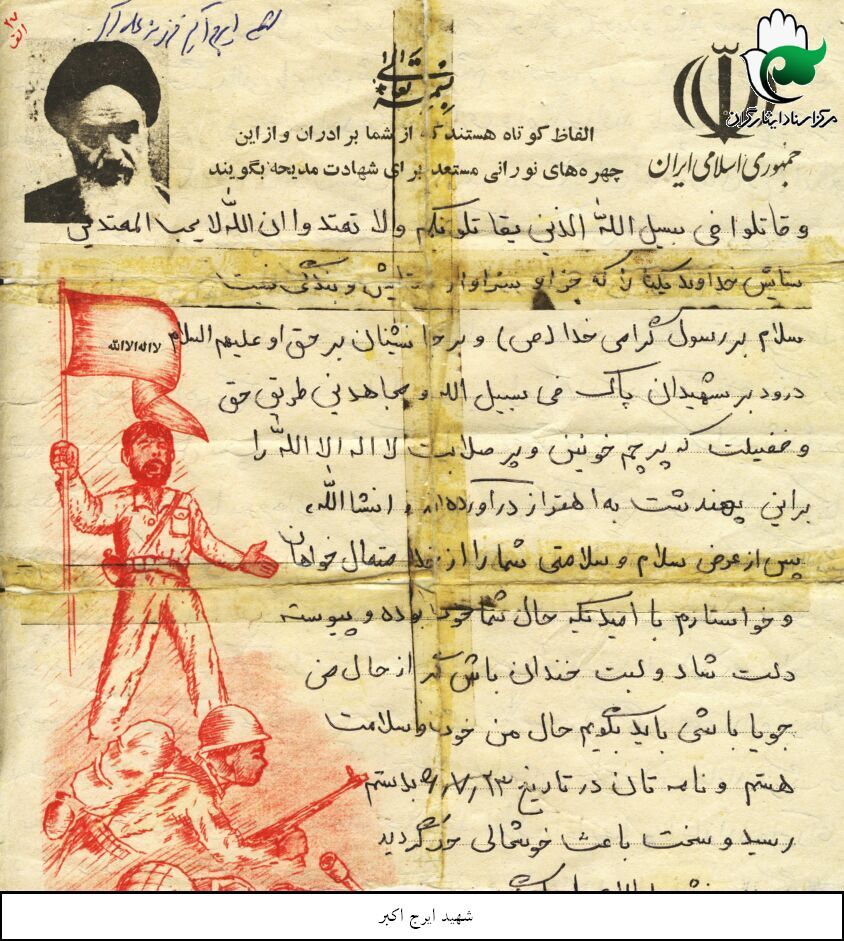 ۲۷
الف
شهید ایرج اکبر فرزند علی اکبر
بسمه تعالی
الفاظ کوتاه هستند که از شما برادران و از این
چهره‌های نورانی مستعد برای شهادت مدیحه بگویند
جمهوری اسلامی ایران
مرکز اسناد ایثارگران
و قاتلوا فی سبیل الله الذین یقاتلونکم ولا تعتدوا ان الله لا یحب المعتدین
ستایش خداوند یکتا را که جز او سزاوار ستایش و بندگی نیست
سلام بر رسول گرامی خدا (ص) و بر جانشینان بر حق او علیهم السلام
درود بر شهیدان پاک فی سبیل الله و مجاهدین طریق حق
و فضیلت که پرچم خونین و پر صلابت لا اله الا الله را
براین پهندشت به اهتزاز درآورده‌اند انشاالله
پس از عرض سلام و سلامتی شما را از خدا متعال خواهان
و خواستارم با امیدیکه حال شما خوب بوده و پیوسته
دلت شاد و لبت خندان باش اگر از حال من
جویا باشی باید بگویم حال من خوب و سلامت
هستم و نامه تان در تاریخ بدستم
رسید و سخت باعث خوشحالی گردید
لا اله الا الله
شهید ایرج اکبر